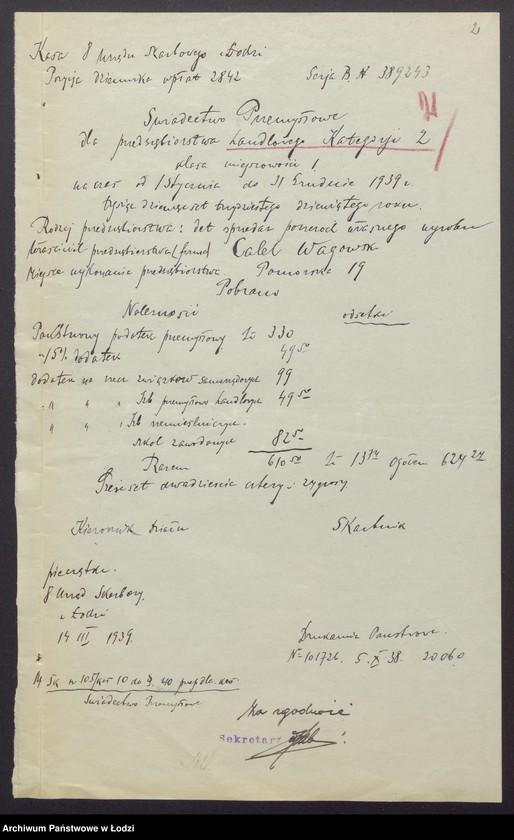 2
Kasa 8 Urzędu Skarbowego w Łodzi
Pozycja dziennika wpłat 2842 Serja B, N 389243
Świadectwo Przemysłowe
dla przedsiębiorstwa handlowego Kategorji 2
klasa miejscowości I
na czas od 1 Stycznia do 31 Grudnia 1939 r.
tysiąc dziewięćset trzydziestego dziewiątego roku.
Rodzaj przedsiębiorstwa: det sprzedaż pończoch własnego wyrobu
Właściciel przedsiębiorstwa (firma) Calel Wagowsk
Miejsce wykonania przedsiębiorstwa. Pomorska 19
Pobrano
Należność odsetki
Państwowy podatek przemysłowy Zł 330
15% dodatek 49 50
dodatek na rzecz związków samorządowych 99
" " " Izb przemysłowo handlowych 49 50
" " " Izb rzemieślniczych.
szkół zawodowych 82 5
Razem 610 50 Zł 13 74 Ogółem 624 24
Sześćset dwadzieścia cztery i 24 grosy
Kierownik Działu Skarbnik
pieczątka.
8 Urząd Skarbowy.
w Łodzi
14 III 1939.
Drukarnia Państwowa.
N-101726. 5. X 38. 20060
Świadectwo Przemysłowe
Za zgodność
Sekretarz
Archiwum Państwowe w Łodzi